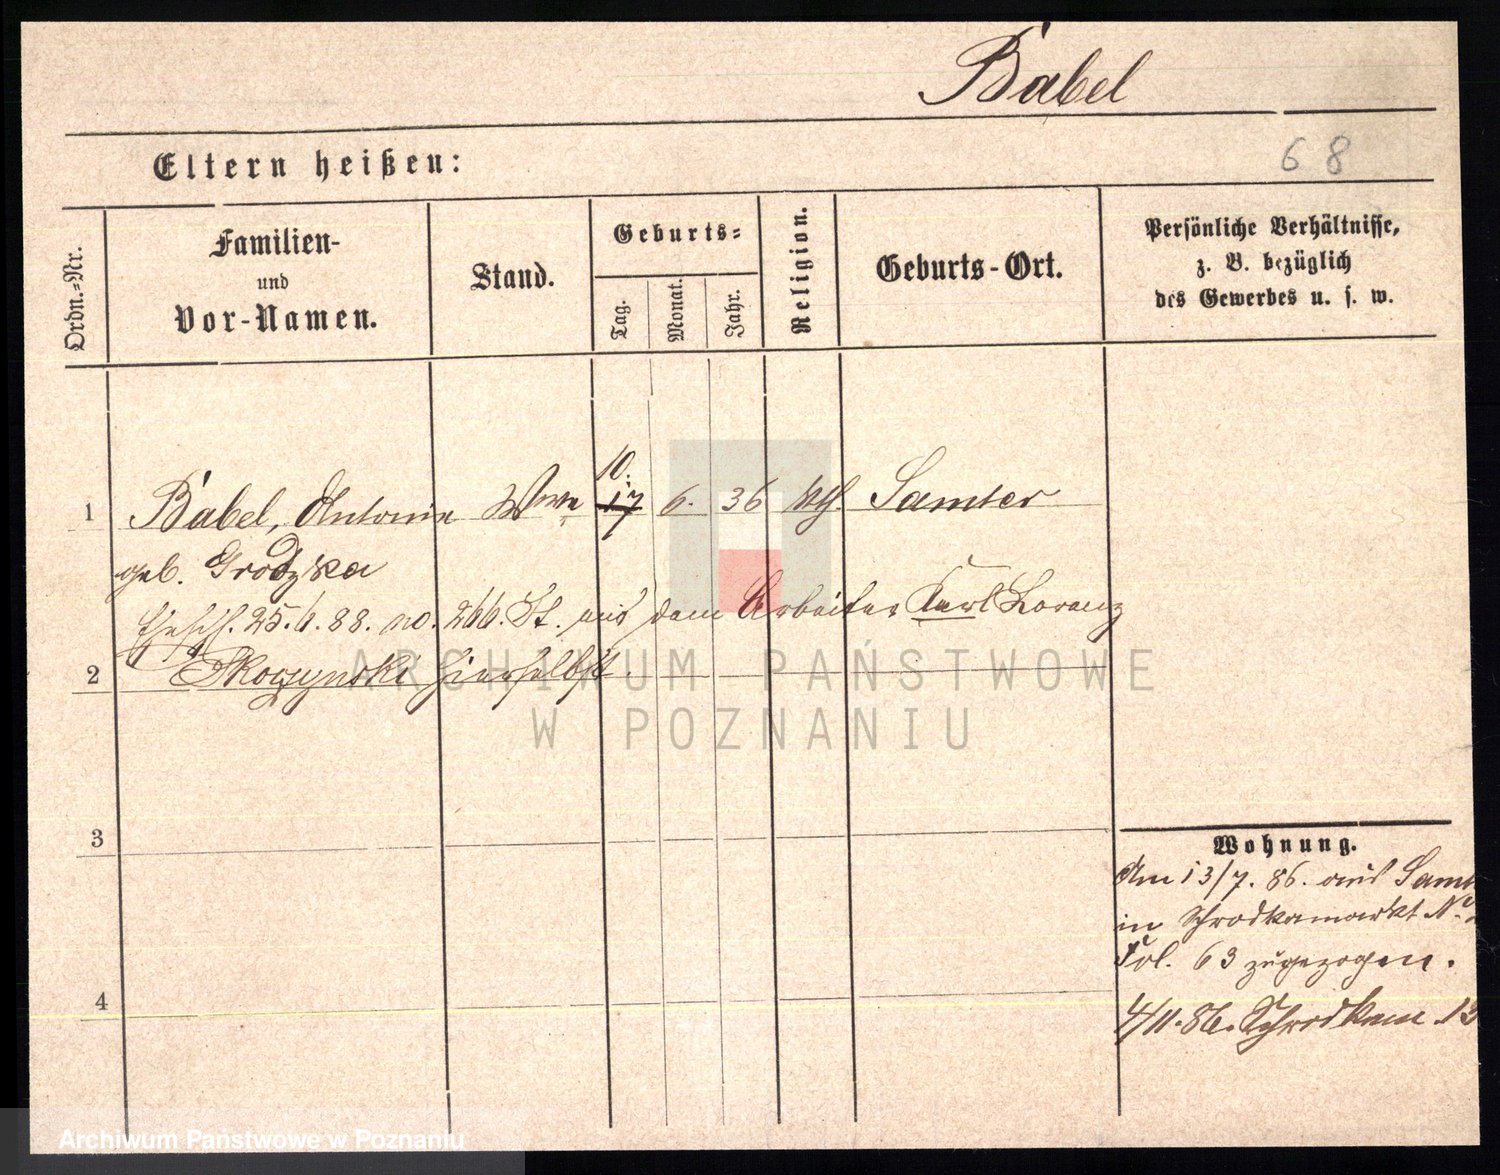 Babel
Eltern heißen:
68
Ordn.-Nr.
Familien-
und
Vor-Namen.
Stand.
Geburts-
Tag.
Monat.
Jahr.
Religion.
Geburts-Ort.
Persönliche Verhältnisse,
z. B. bezüglich
des Gewerbes u. s. w.
10.
1 Babel, Antonie Wwe 17 6. 36 kth. Samter
geb. Grodzka
Ehesch. 25.6.88. no. 266. St. mit dem Arbeiter Karl Lorenz
2 Skoczynski hierselbst.
ARCHIWUM PAŃSTWOWE
W POZNANIU
3
Wohnung.
Am 13/7. 86. aus Samt
in Schrodkamarkt No.
Fol. 63 zugezogen.
4
4/11.86. Schrodkam. 13
Archiwum Państwowe w Poznaniu